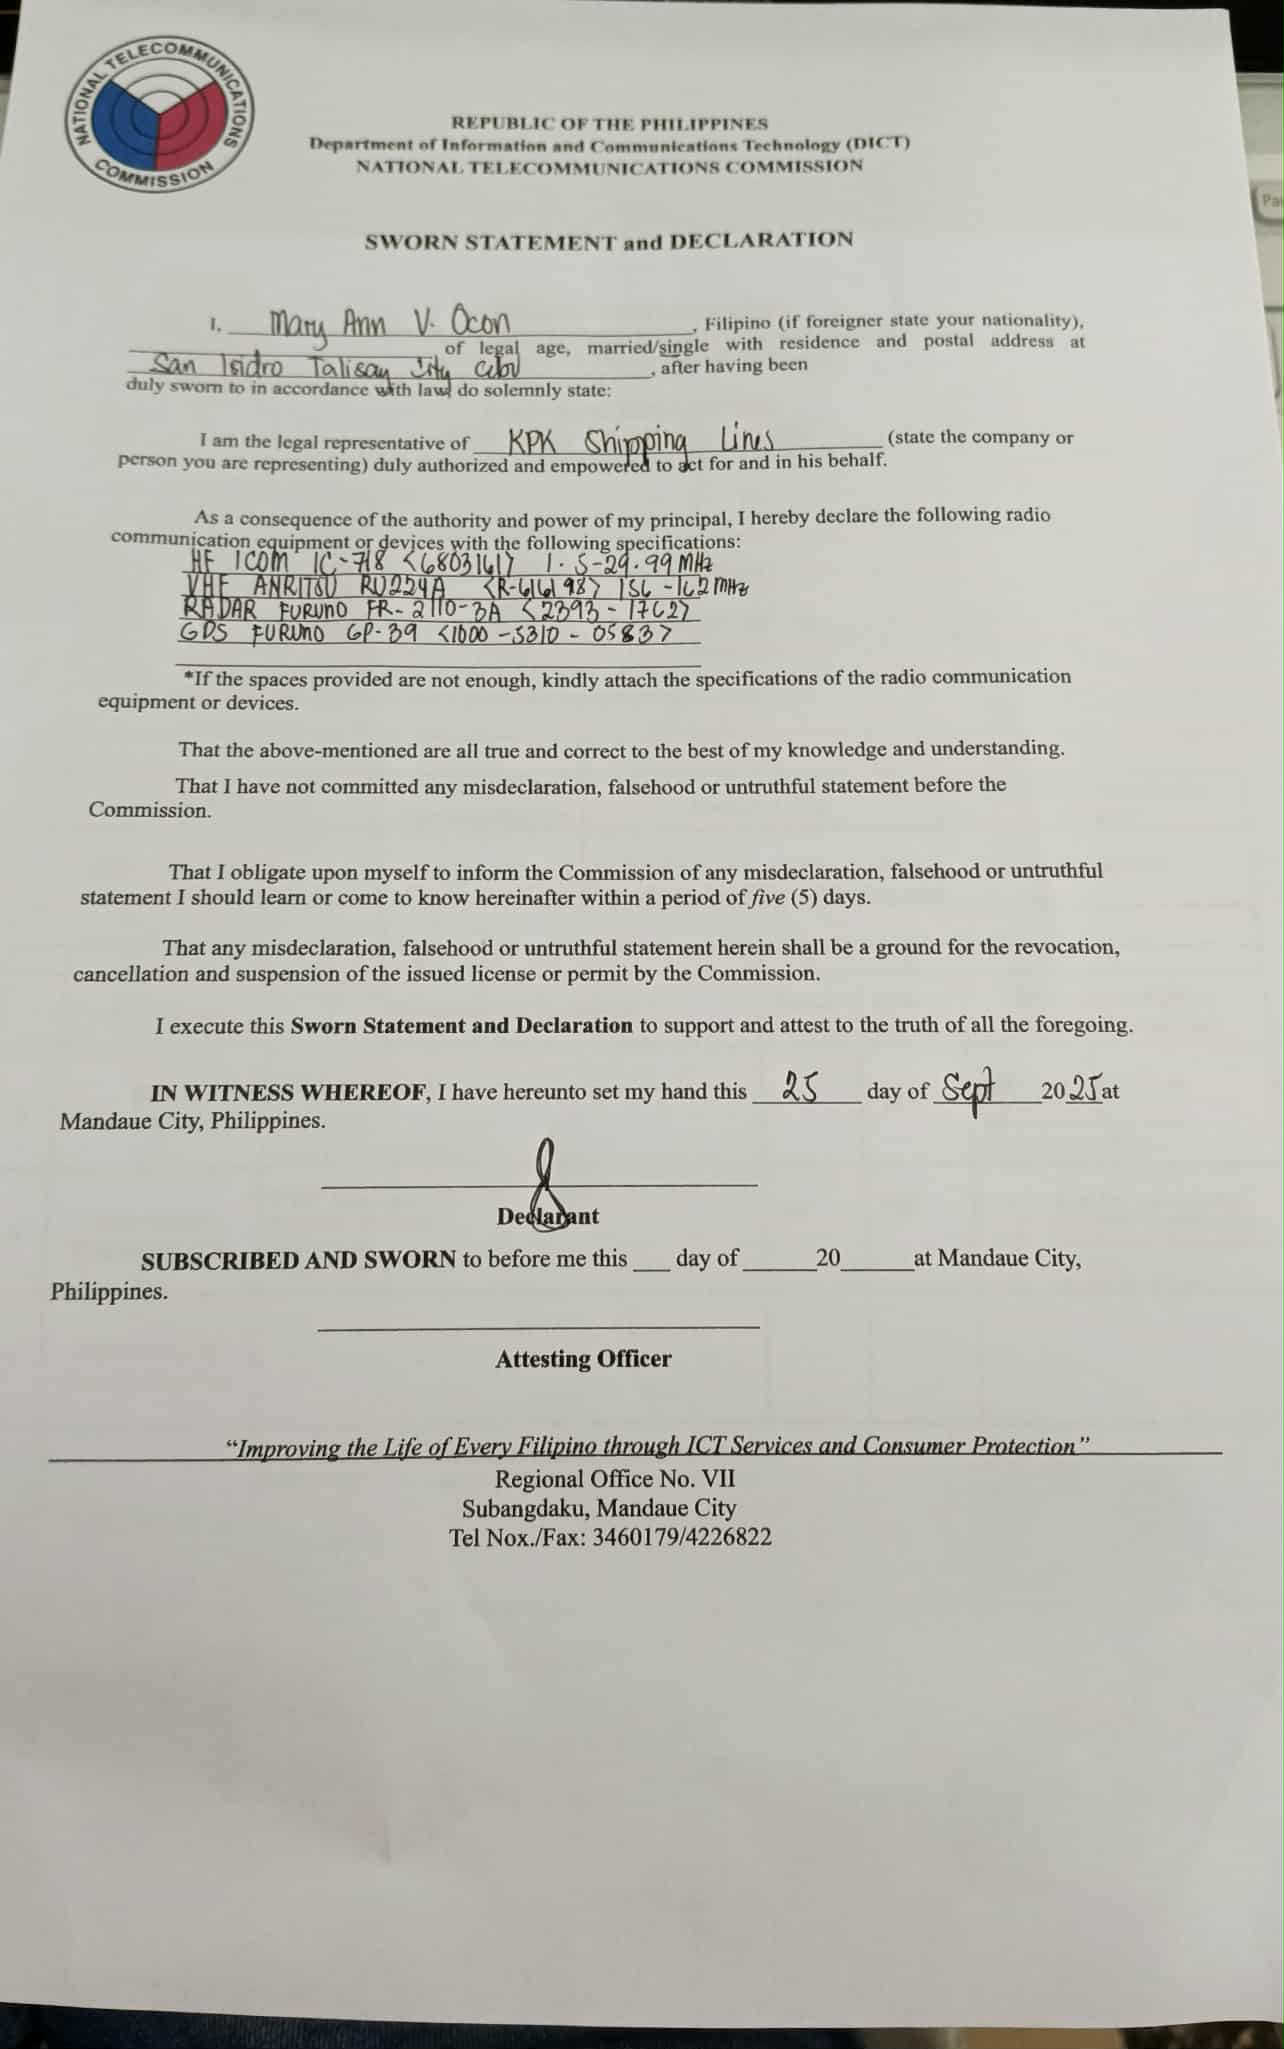 NATIONAL TELECOMMUNICATIONS COMMISSION
REPUBLIC OF THE PHILIPPINES
Department of Information and Communications Technology (DICT)
NATIONAL TELECOMMUNICATIONS COMMISSION
SWORN STATEMENT and DECLARATION
I, Mary Ann V. Ocon, Filipino (if foreigner state your nationality),
of legal age, married/single with residence and postal address at
San Isidro Talisay City Cebu, after having been
duly sworn to in accordance with law, do solemnly state:
I am the legal representative of KPK Shipping Lines (state the company or
person you are representing) duly authorized and empowered to act for and in his behalf.
As a consequence of the authority and power of my principal, I hereby declare the following radio
communication equipment or devices with the following specifications:
HF ICOM IC-718 <6803161> 1.5-29.99 MHz
VHF ANRITSU RU224A <R-616198> 156-162 MHz
RADAR FURUNO FR-2110-3A <2393-1762>
GPS FURUNO GP-39 <1000-5310-0583>
*If the spaces provided are not enough, kindly attach the specifications of the radio communication
equipment or devices.
That the above-mentioned are all true and correct to the best of my knowledge and understanding.
That I have not committed any misdeclaration, falsehood or untruthful statement before the
Commission.
That I obligate upon myself to inform the Commission of any misdeclaration, falsehood or untruthful
statement I should learn or come to know hereinafter within a period of five (5) days.
That any misdeclaration, falsehood or untruthful statement herein shall be a ground for the revocation,
cancellation and suspension of the issued license or permit by the Commission.
I execute this Sworn Statement and Declaration to support and attest to the truth of all the foregoing.
IN WITNESS WHEREOF, I have hereunto set my hand this 25 day of Sept 2025 at
Mandaue City, Philippines.
Declarant
SUBSCRIBED AND SWORN to before me this ___ day of ______20______at Mandaue City,
Philippines.
Attesting Officer
"Improving the Life of Every Filipino through ICT Services and Consumer Protection"
Regional Office No. VII
Subangdaku, Mandaue City
Tel Nox./Fax: 3460179/4226822